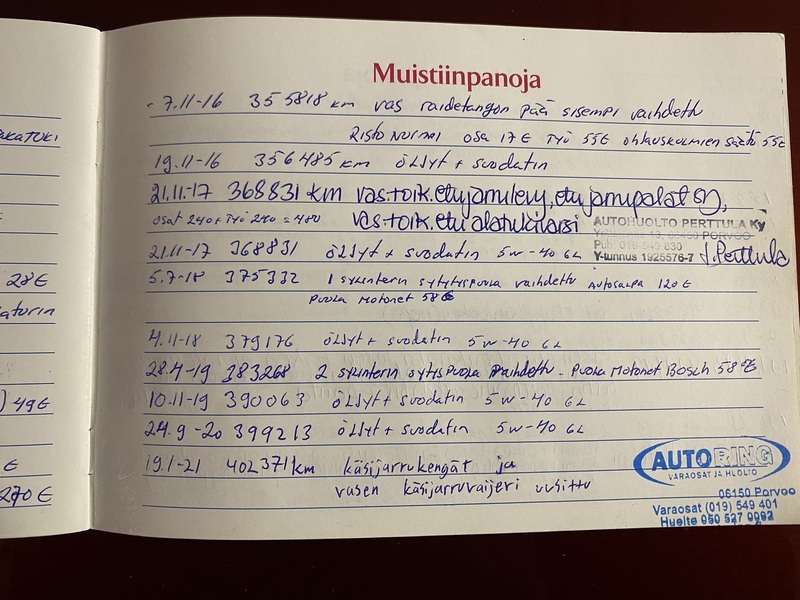 Muistiinpanoja
- 7.11-16 355818 km vas raidetangon pää sisempi vaihdettu
Risto Nurmi osa 17€ Työ 55€ ohjauskulmien säätö 55€
19.11-16 356485 km öljyt + suodatin
21.11-17 368831 km vas.toik.etujarrulevy, etujarrupalat
osat 240 + Työ 240 = 480 vas.toik.etu alatukivarsi
AUTOHUOLTO PERTTULA Ky
PORVOO
Puh. 019-549 830
Y-tunnus 1925576-7 J. Perttula
21.11-17 368831 öljyt + suodatin 5w-40 6L
5.7-18 375332 1 sylinterin sytytyspuola vaihdettu Autosalpa 120€
Puola Motonet 58€
4.11-18 379176 öljyt + suodatin 5w-40 6L
28.4-19 383268 2 sylinterin sytytyspuola vaihdettu. Puola Motonet Bosch 58€
10.11-19 390063 öljyt + suodatin 5w-40 6L
24.9-20 399213 öljyt + suodatin 5w-40 6L
19.1-21 402371km käsijarrukengät ja
vasen käsijarruvaijeri uusittu
AUTORING
VARAOSAT JA HUOLTO
06150 Porvoo
Varaosat (019) 549 401
Huolto 050 527 0092
AKATUKI
28€
atorin
) 49€
€
270€